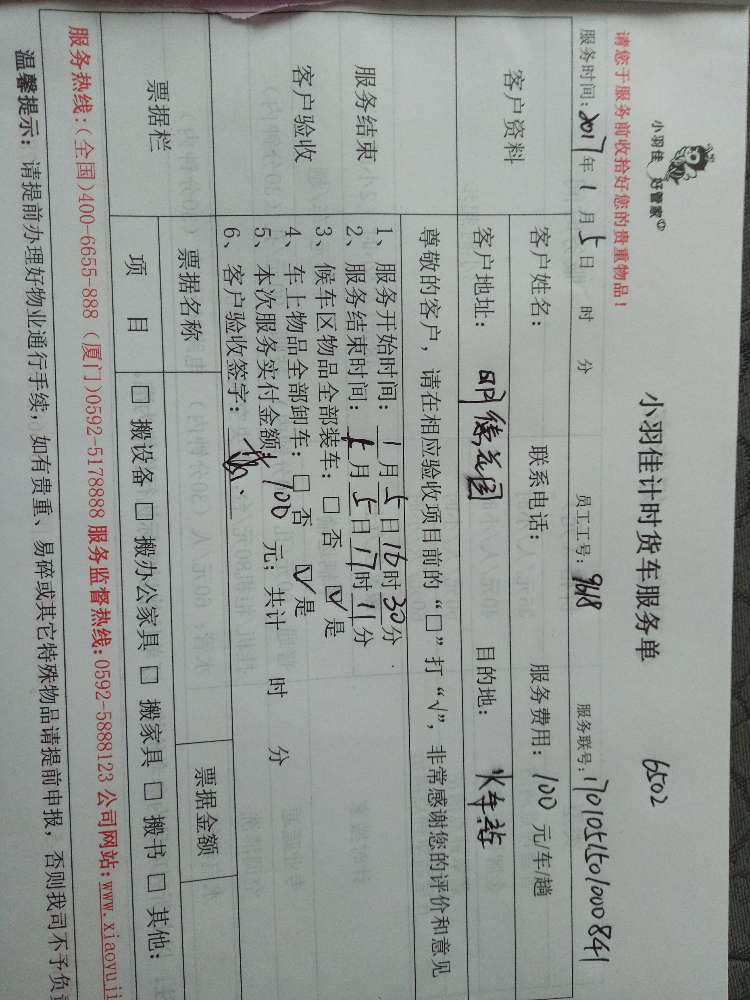 小羽佳 好管家
小羽佳计时货车服务单
6502
请您于服务前收拾好您的贵重物品!
服务时间:2017年1月5日 时 分 员工工号:968 服务联号:1701051501000841
客户资料
客户姓名: 联系电话: 服务费用:100元/车/趟
客户地址:明德花园 目的地:火车站
尊敬的客户,请在相应验收项目前的“□”打“√”,非常感谢您的评价和意见
服务结束
客户验收
1、服务开始时间:1月5日16时30分
2、服务结束时间:1月5日17时11分
3、候车区物品全部装车:□否 ☑是
4、车上物品全部卸车:□否 ☑是
5、本次服务实付金额:100元;共计 时 分
6、客户验收签字:
票据栏
票据名称 票据金额
项 目 □搬设备 □搬办公家具 □搬家具 □搬书 □其他:
服务热线:(全国)400-6655-888 (厦门)0592-5178888 服务监督热线:0592-5888123 公司网站:www.xiaoyuji
温馨提示: 请提前办理好物业通行手续,如有贵重、易碎或其它特殊物品请提前申报,否则我司不予负